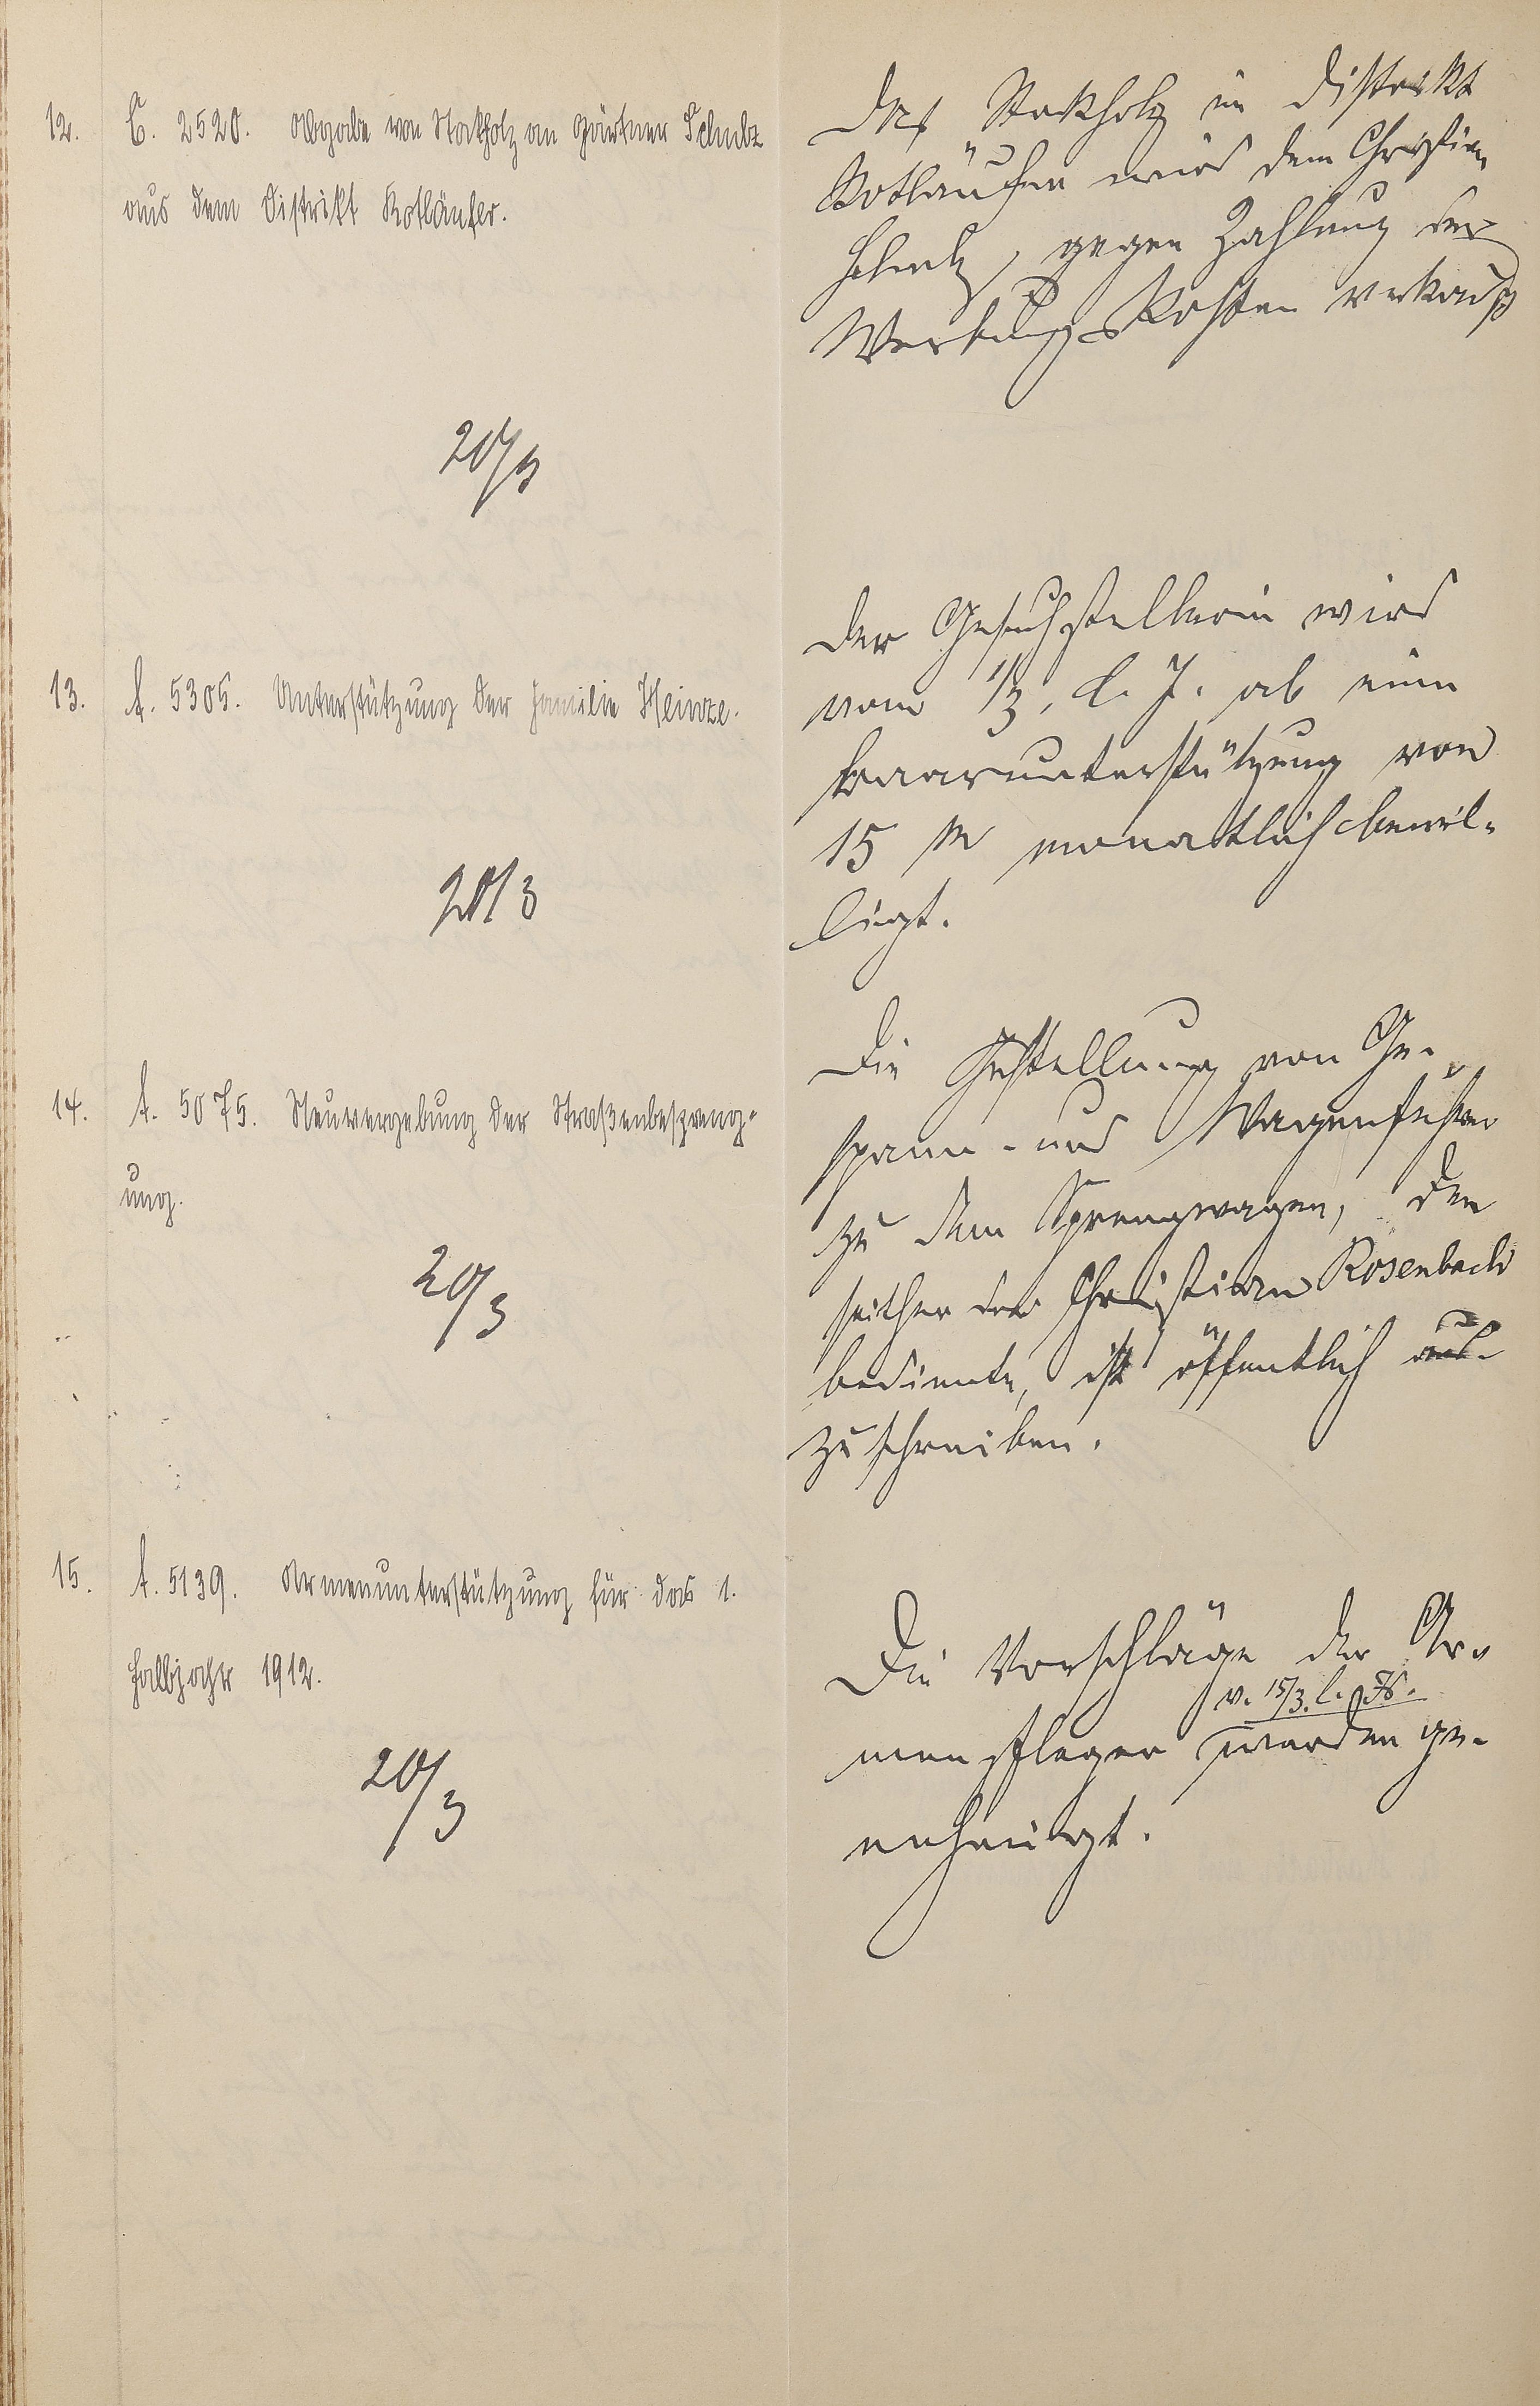 12. C. 2520. Abgabe von Stockholz an Gärtner Schulz
aus dem Distrikt Rotläufer.
20/3
Das Stockholz im Distrikt
Rotläufer wird dem Christian
Schulz, gegen Zahlung der
Werbungskosten verkauft
13. A. 5305. Unterstützung der Familie Heinze.
20/3
Der Gesuchstellerin wird
vom 1/3. l. J. ab eine
Baarunterstützung von
15 M monatlich bewil-
ligt.
14. A. 5075. Neuvergebung der Straßenbespreng-
ung.
20/3
Die Gestellung von Ge-
spann- und Wagenführer
zu dem Sprengwagen, den
seither der Christian Rosenbach
bediente, ist öffentlich aus-
zuschreiben.
15. A. 5139. Armenunterstützung für das 1.
Halbjahr 1912.
20/3
Die Vorschläge der Ar-
v. 15/3. l. Js.
menpfleger werden ge-
nehmigt.